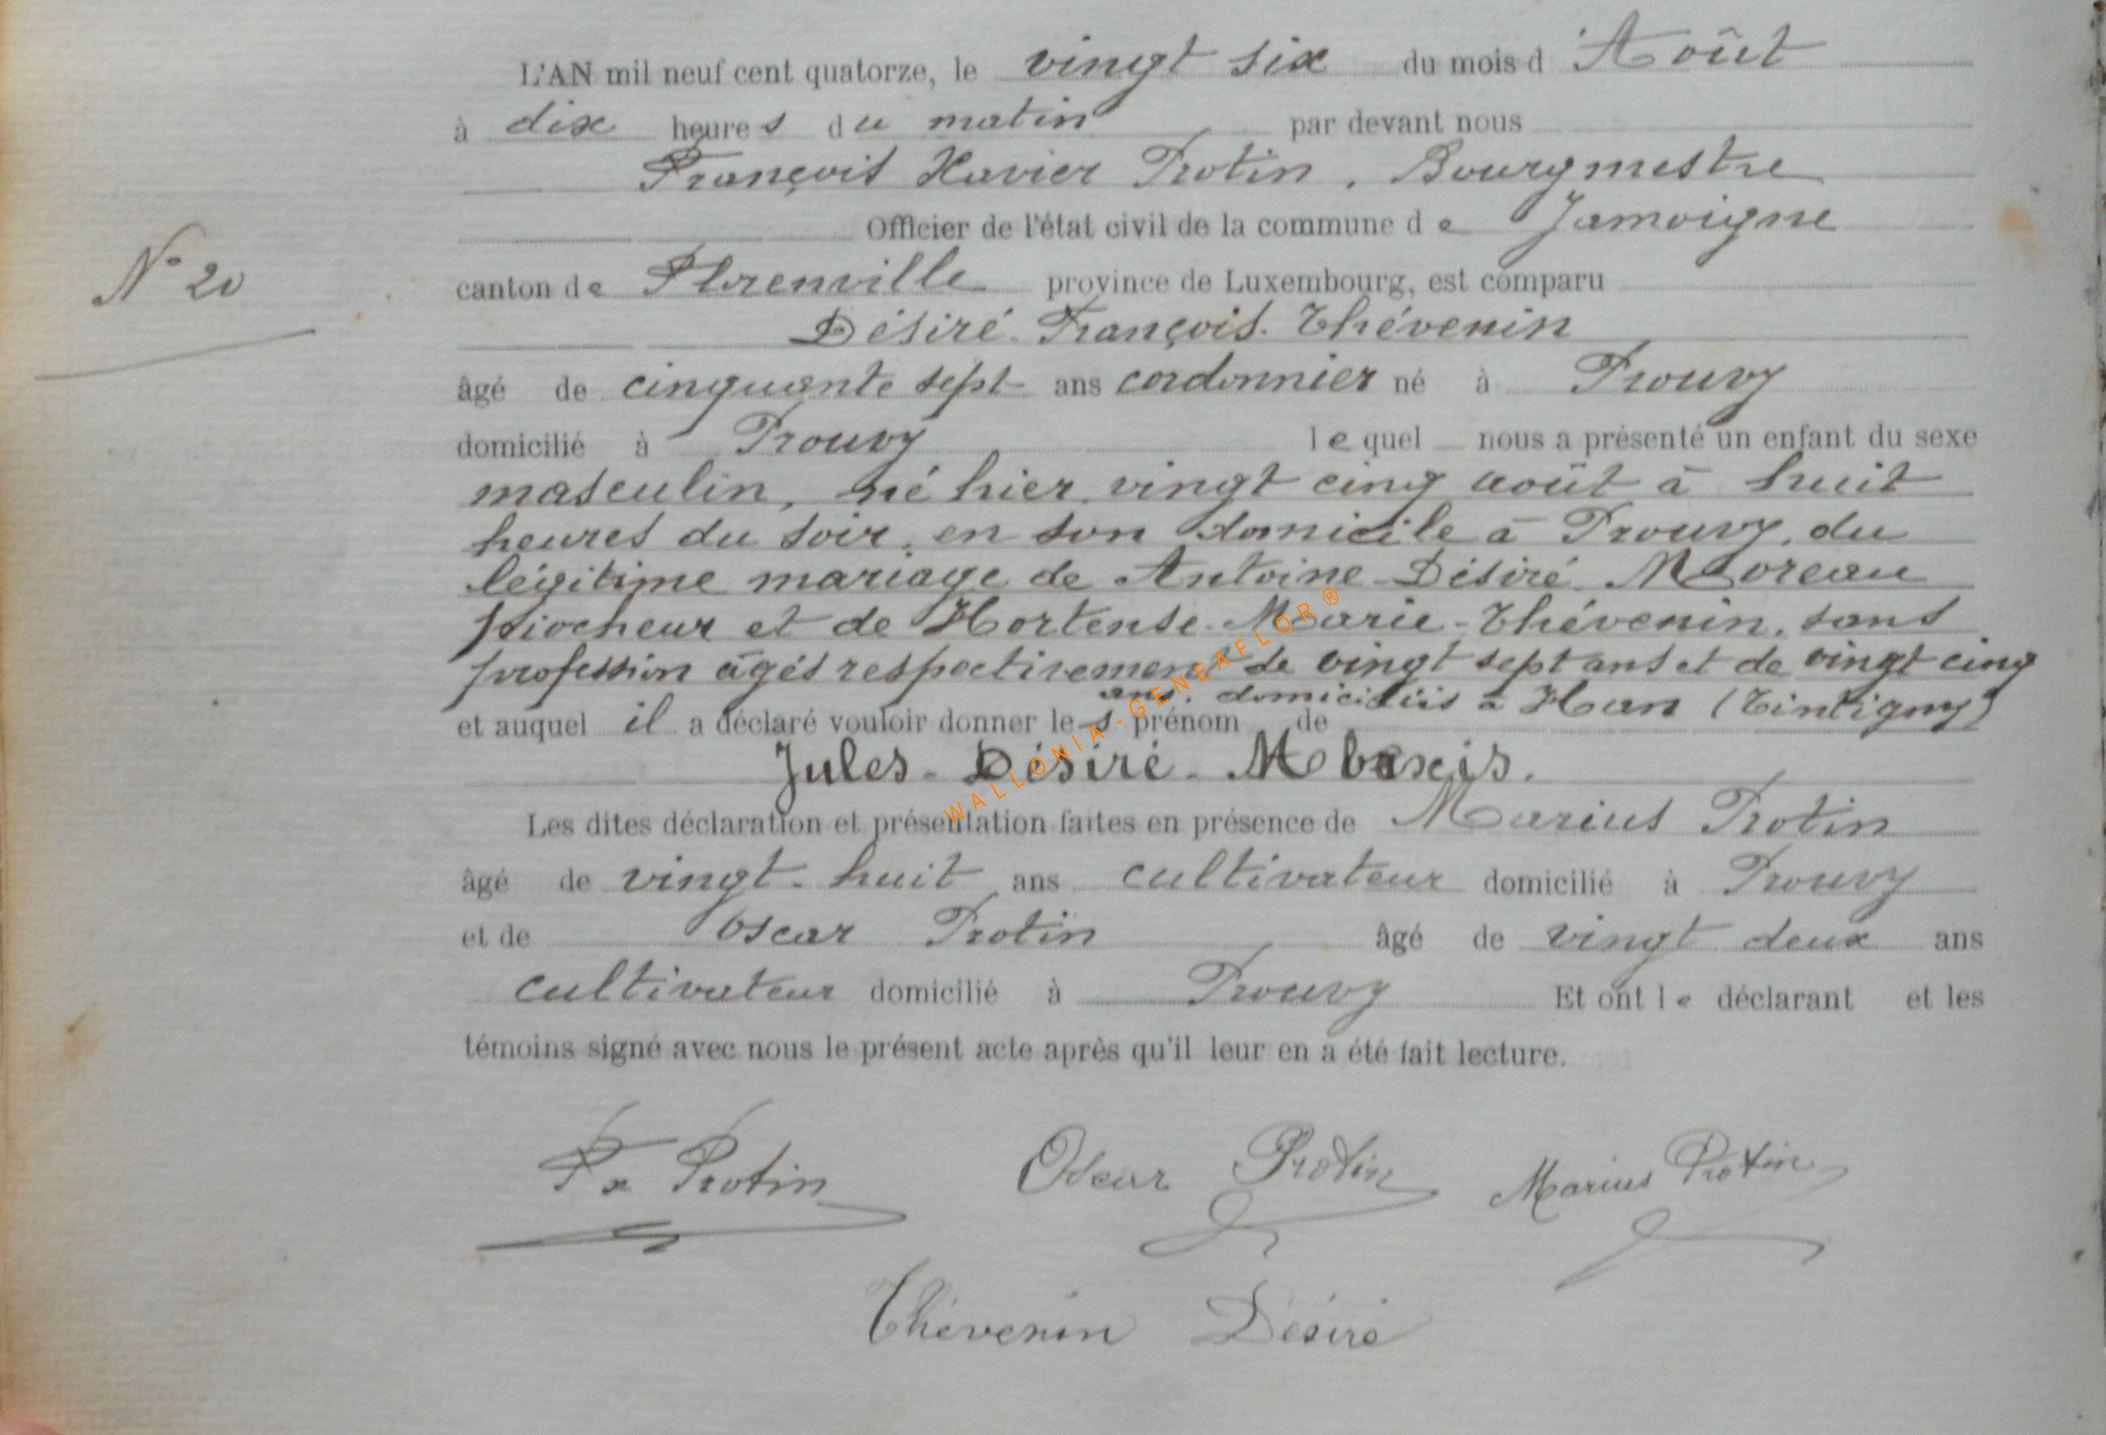 L'AN mil neuf cent quatorze, le vingt six du mois d'Août
à dix heures du matin par devant nous
François Xavier Protin, Bourgmestre
Officier de l'état civil de la commune de Jamoigne
N° 20
canton de Florenville province de Luxembourg, est comparu
Désiré-François Thévenin
âgé de cinquante sept ans cordonnier né à Prouvy
domicilié à Prouvy lequel nous a présenté un enfant du sexe
masculin, né hier vingt cinq août à huit
heures du soir, en son domicile à Prouvy, du
légitime mariage de Antoine-Désiré Moreau
piocheur et de Hortense-Marie-Thévenin, sans
profession âgés respectivement de vingt sept ans et de vingt cinq
ans domiciliés à Han (Tintigny)
et auquel il a déclaré vouloir donner les prénom de
Jules-Désiré-
Les dites déclaration et présentation faites en présence de Marius Protin
âgé de vingt-huit ans cultivateur domicilié à Prouvy
et de Oscar Protin âgé de vingt deux ans
cultivateur domicilié à Prouvy Et ont le déclarant et les
témoins signé avec nous le présent acte après qu'il leur en a été fait lecture.
Fx Protin Oscar Protin Marius Protin
Thévenin Désiré
WALLONIA-GENEAFLOR®